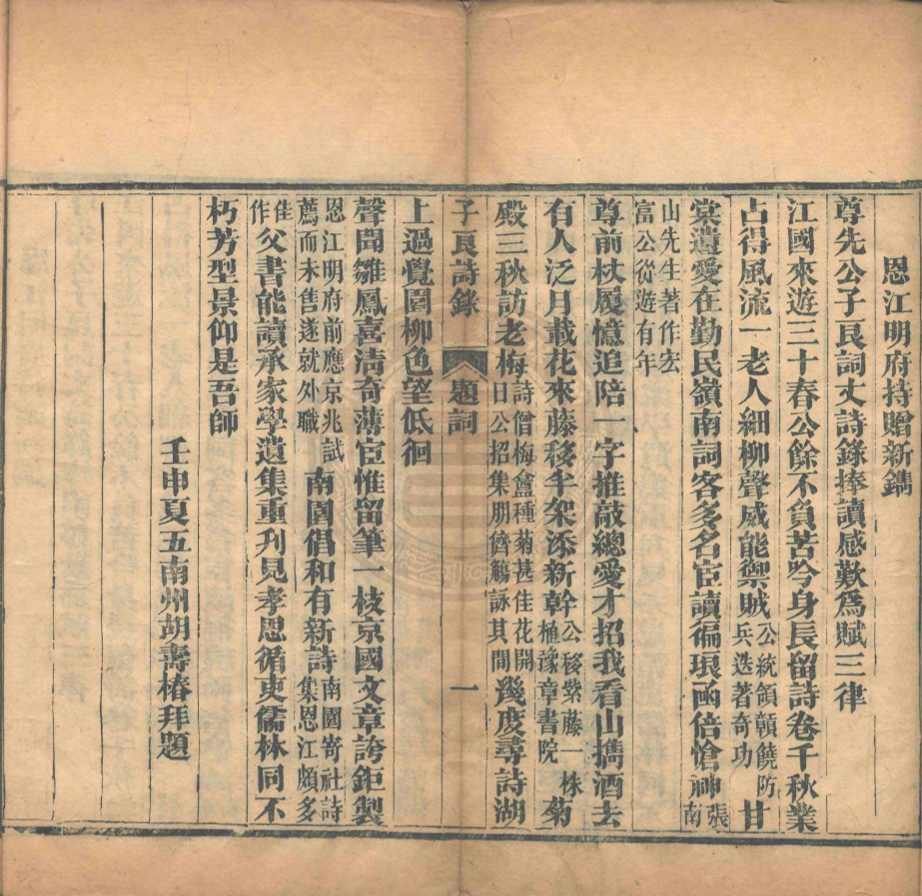 恩江明府持贈新鐫
尊先公子良詞丈詩錄捧讀感歎爲賦三律
江國來遊三十春公餘不負苦吟身長留詩卷千秋業
占得風流一老人細柳聲威能禦賊公統領贛饒防兵迭著奇功甘
棠遺愛在勤民嶺南詞客多名宦讀徧琅函倍愴神張南
山先生著作宏富公從遊有年
尊前杖履憶追陪一字推敲總愛才招我看山攜酒去
有人泛月載花來藤移半架添新幹公移紫藤一株植豫章書院菊
殿三秋訪老梅詩僧梅盦種菊甚佳花開日公招集朋儕觴詠其間幾度尋詩湖
子良詩錄 題詞 一
上過覺園柳色望低徊
聲聞雛鳳喜清奇薄宦惟留筆一枝京國文章誇鉅製
恩江明府前應京兆試薦而未售遂就外職南園倡和有新詩南園嵜社詩集恩江頗多
佳作父書能讀承家學遺集重刋見孝思循吏儒林同不
朽芳型景仰是吾師
壬申夏五南州胡壽椿拜題